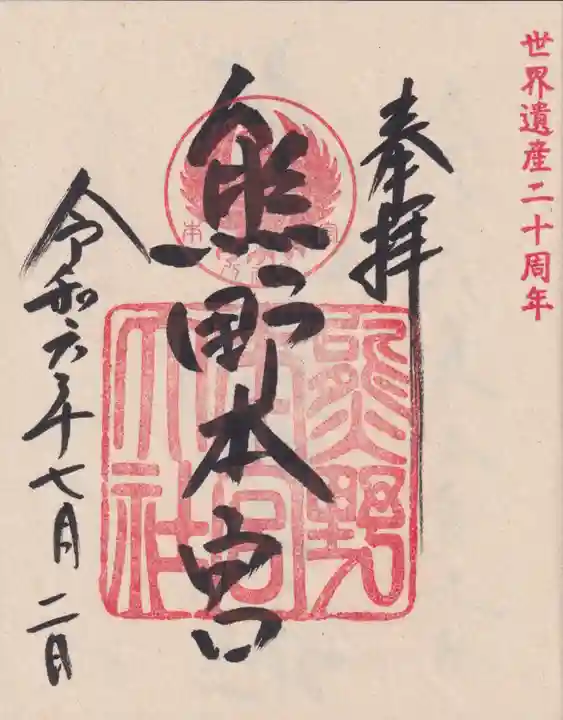 世界遺産二十周年
奉拝
熊野本宮
熊野本宮大社
令和六年七月二日